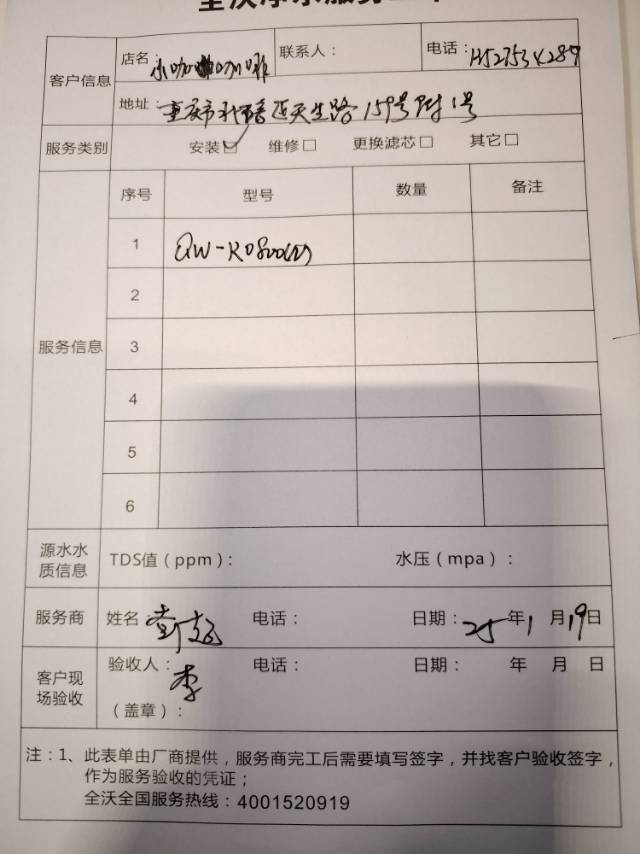 店名 联系人： 电话：
客户信息
地址： 重庆市北碚区天生路159号附1号
服务类别 安装☑ 维修□ 更换滤芯□ 其它□
序号 型号 数量 备注
1 QW-R0800
2
服务信息 3
4
5
6
源水水质信息 TDS值（ppm）： 水压（mpa）：
服务商 姓名 电话： 日期：25年1月19日
客户现场验收 验收人：李 电话： 日期： 年 月 日
（盖章）：
注：1、此表单由厂商提供，服务商完工后需要填写签字，并找客户验收签字，
作为服务验收的凭证；
全沃全国服务热线：4001520919